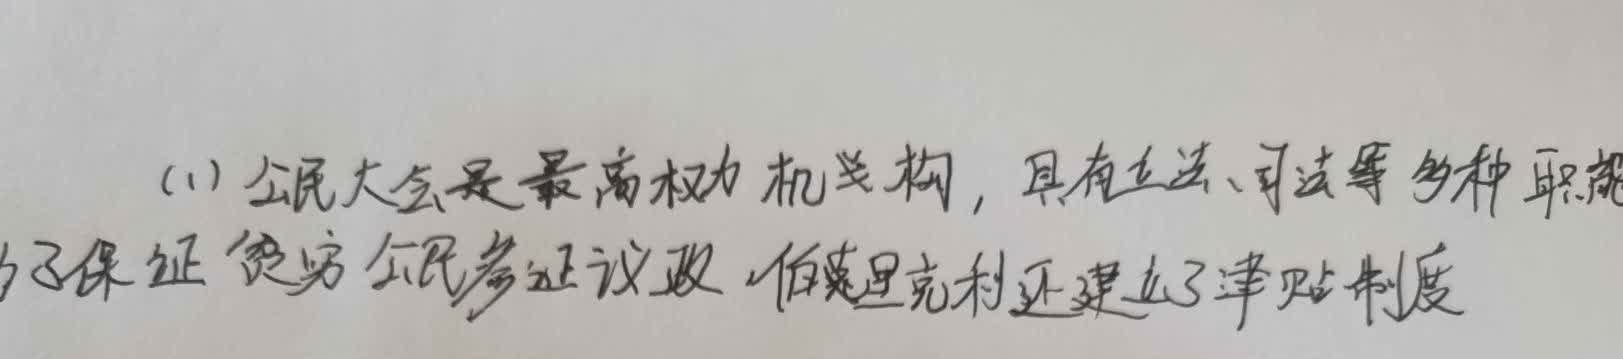 (1)公民大会是最高权力机关构，具有立法、司法等多种职能
为了保证贫穷公民参证议政，伯莱里克利还建立了津贴制度